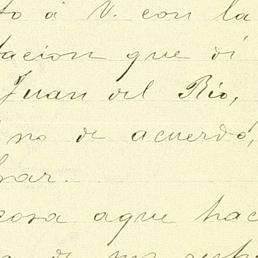 to á V. con la
tacion que di
Juan del Rio,
no de acuerdo,
sar.
cosa aque hac
a de mi